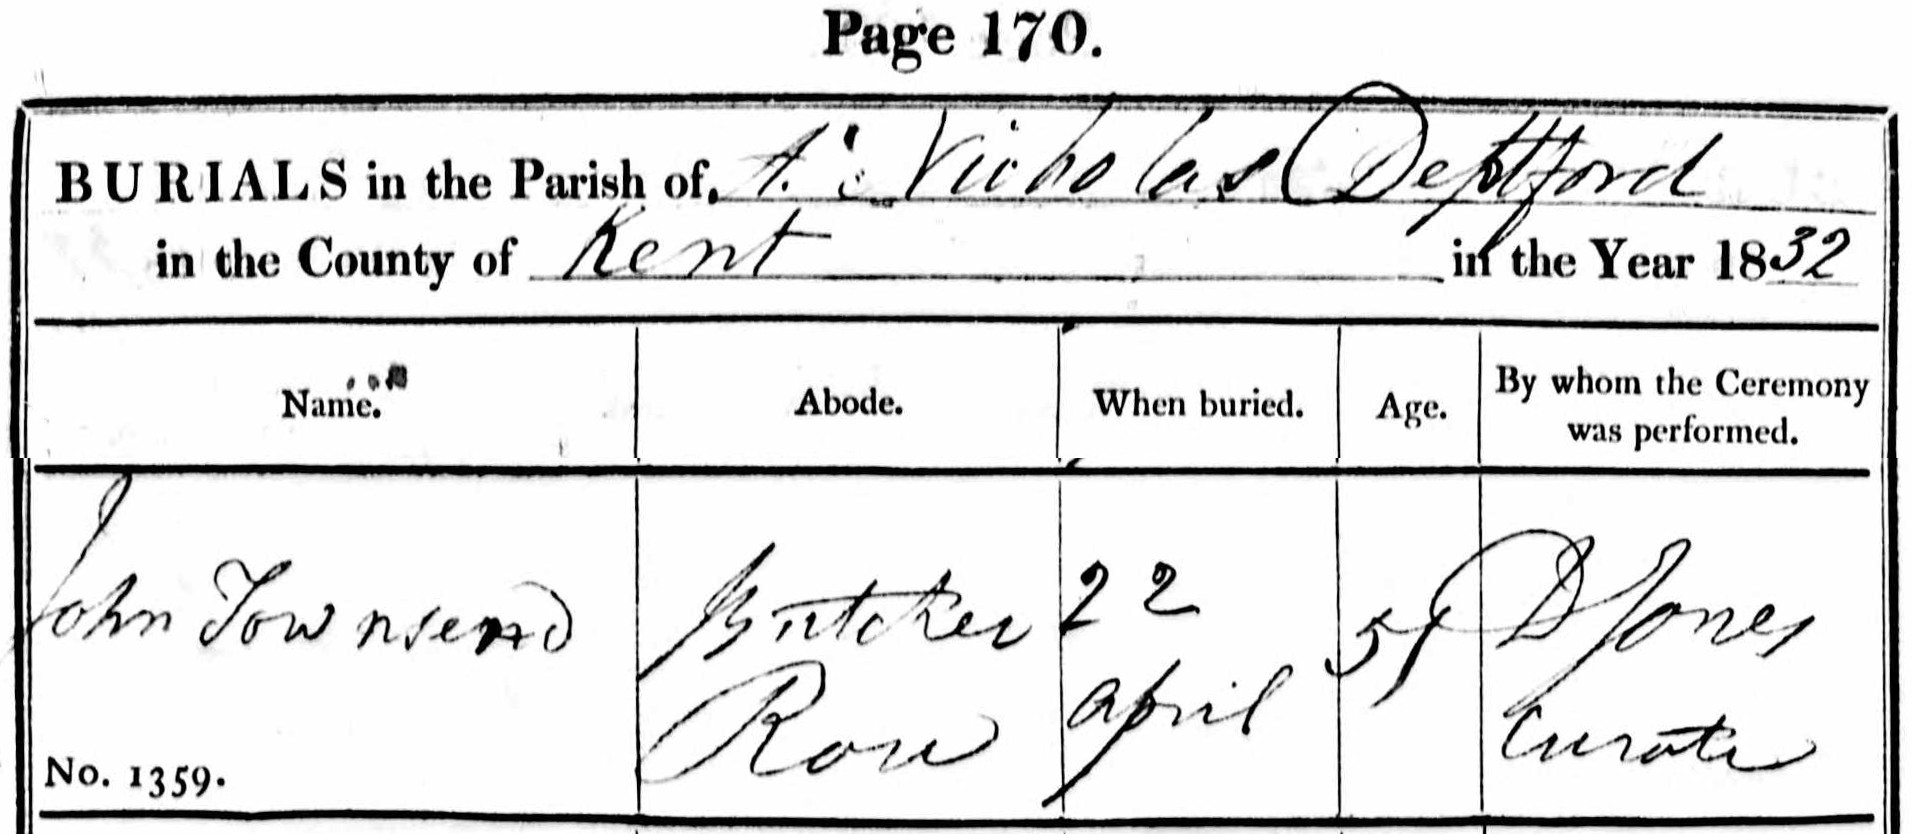 Page 170.
BURIALS in the Parish of St. Nicholas Deptford
in the County of Kent in the Year 1832
Name. Abode. When buried. Age. By whom the Ceremony was performed.
John Townsend Butcher 22 D Jones
Row april Curate
No. 1359.